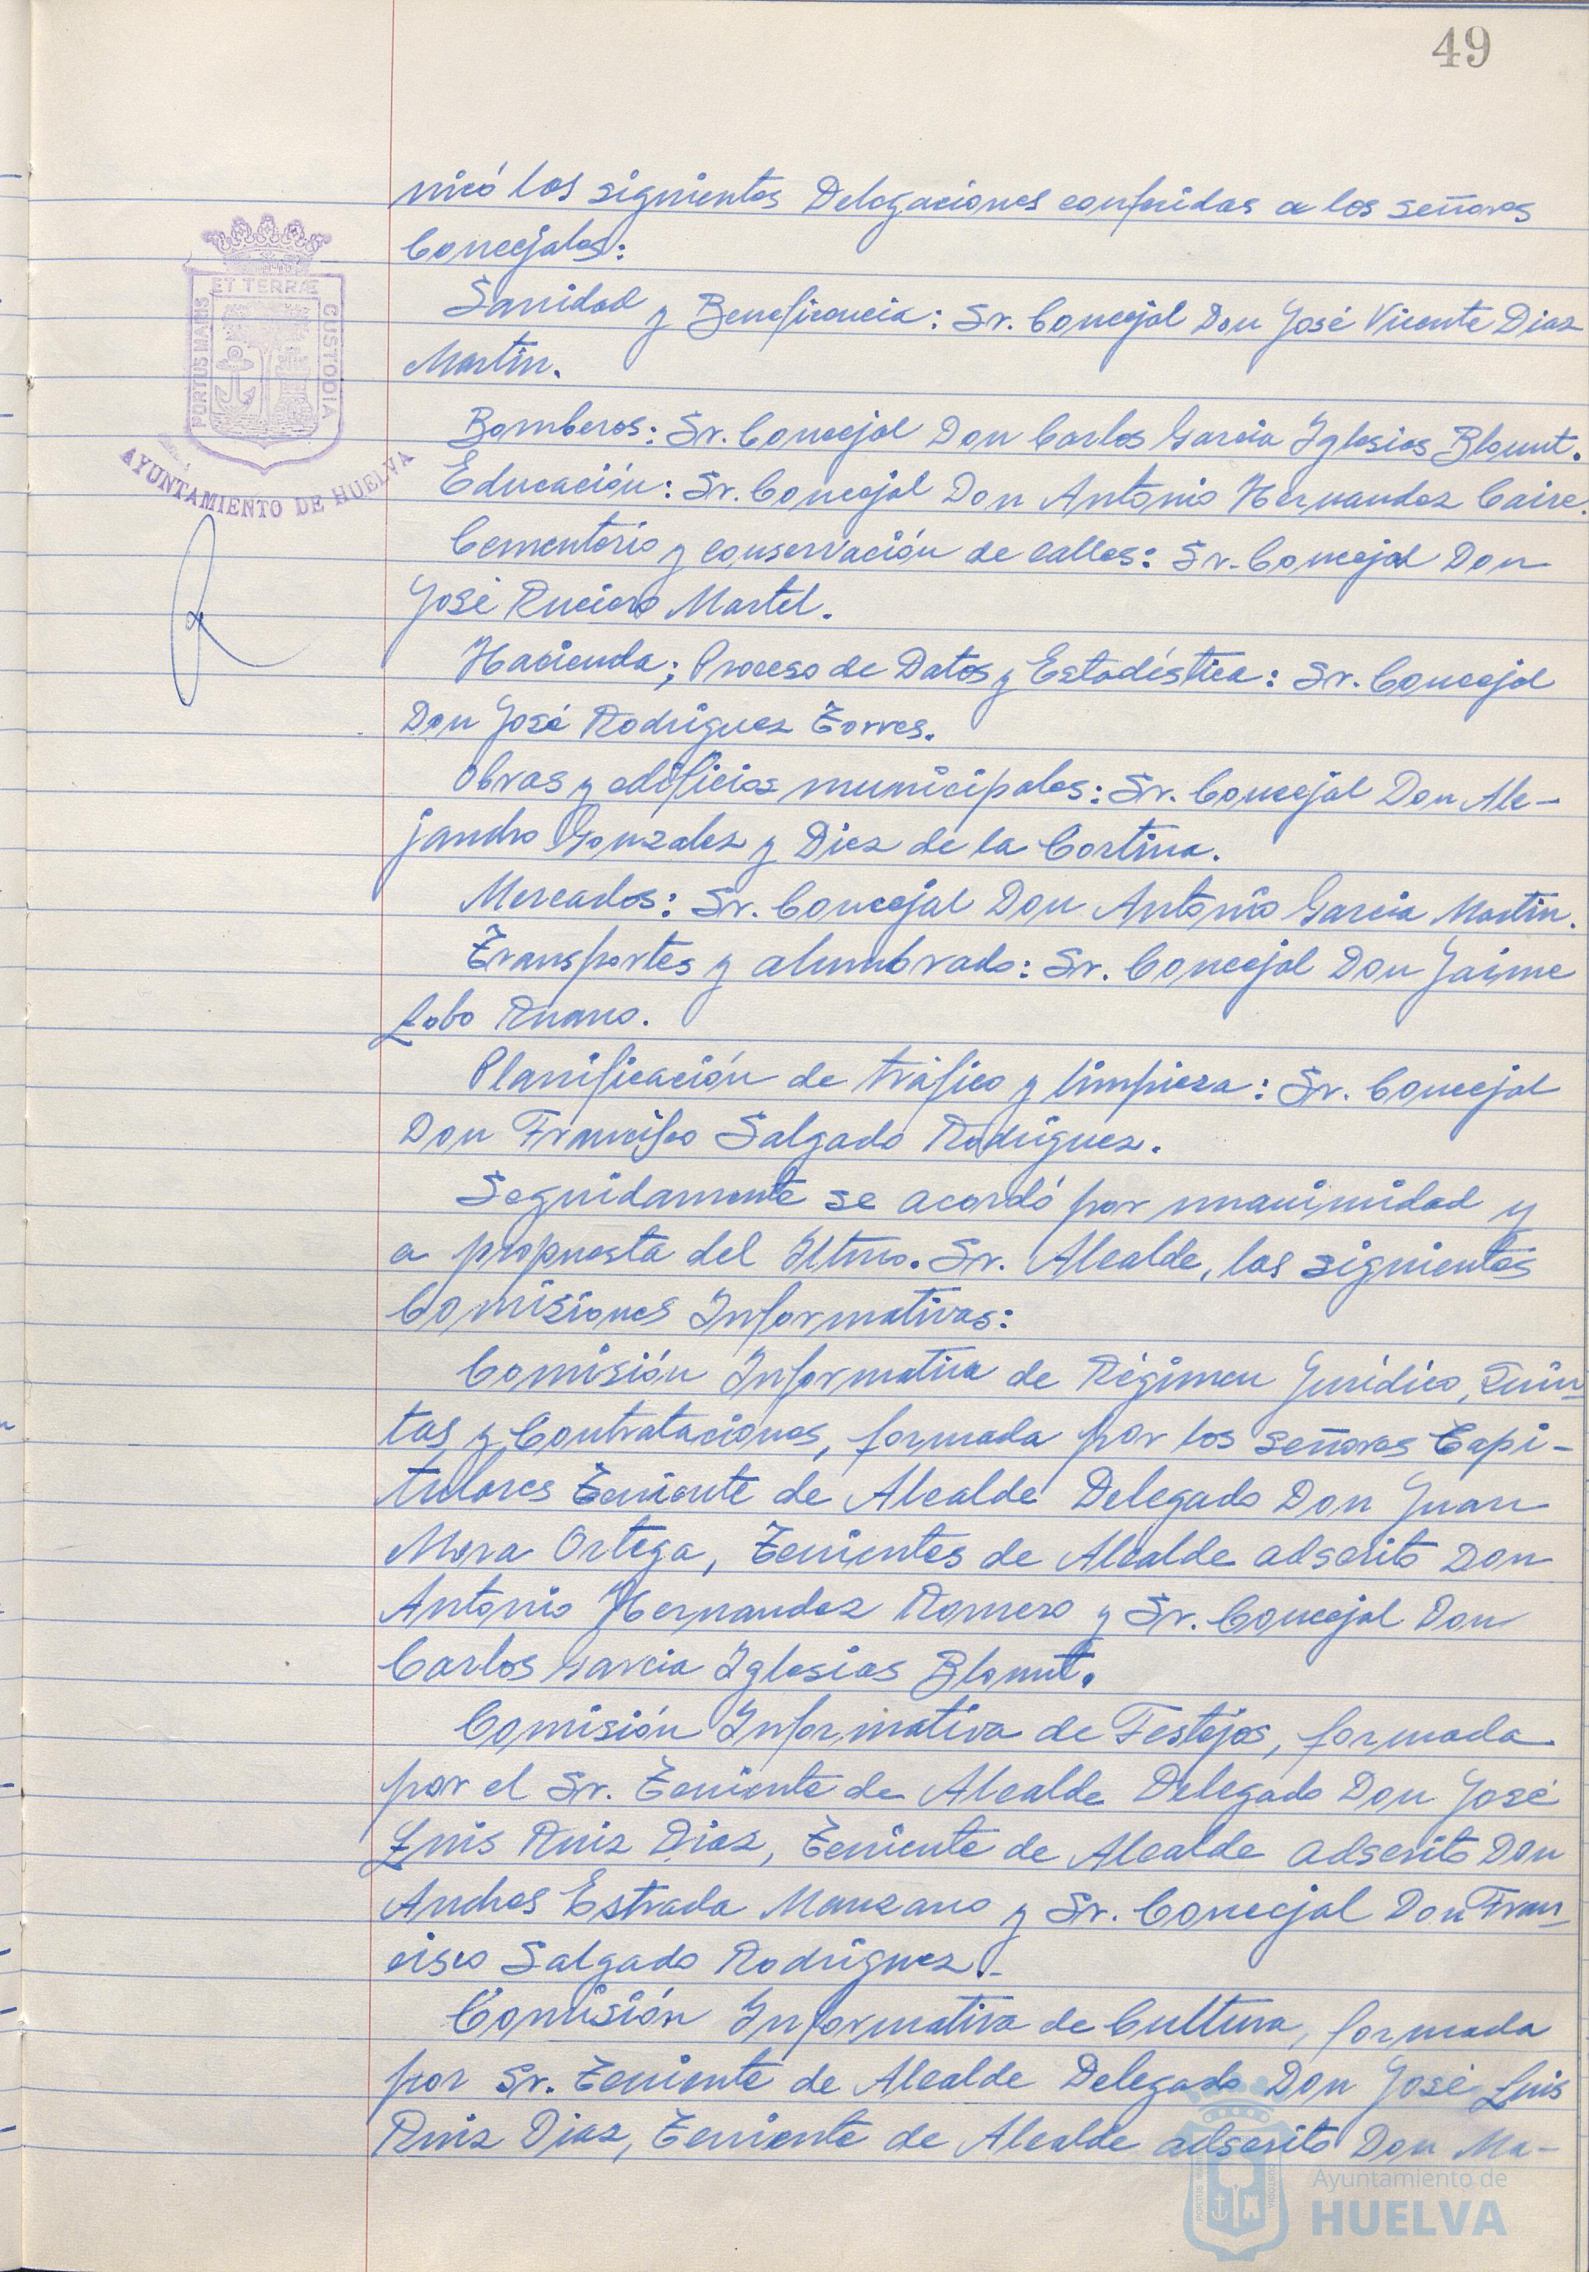 49
nicó las siguientes Delegaciones conferidas a los señores
Concejales:
Sanidad y Beneficencia: Sr. Concejal Don José Vicente Diaz
Martin.
Bomberos: Sr. Concejal Don Carlos Garcia Iglesias Blount.
Educación: Sr. Concejal Don Antonio Hernandez Caire.
Cementerio y conservación de calles: Sr. Concejal Don
José Ruciero Martel.
Hacienda; Proceso de Datos y Estadística: Sr. Concejal
Don José Rodriguez Torres.
Obras y edificios municipales: Sr. Concejal Don Ale-
jandro Gonzalez y Diez de la Cortina.
Mercados: Sr. Concejal Don Antonio Garcia Martin.
Transportes y alumbrado: Sr. Concejal Don Jaime
Lobo Ruano.
Planificación de tráfico y limpieza: Sr. Concejal
Don Francisco Salgado Rodriguez.
Seguidamente se acordó por unanimidad y
a propuesta del Iltmo. Sr. Alcalde, las siguientes
Comisiones Informativas:
Comisión Informativa de Régimen Jurídico, Quin-
tas y Contrataciones, formada por los señores Capi-
tulares Teniente de Alcalde Delegado Don Juan
Mora Ortega, Tenientes de Alcalde adscrito Don
Antonio Hernandez Romero y Sr. Concejal Don
Carlos Garcia Iglesias Blount.
Comisión Informativa de Festejos, formada
por el Sr. Teniente de Alcalde Delegado Don José
Luis Ruiz Diaz, Teniente de Alcalde adscrito Don
Andres Estrada Manzano y Sr. Concejal Don Fran-
cisco Salgado Rodriguez.-
Comisión Informativa de Cultura, formada
por Sr. Teniente de Alcalde Delegado Don José Luis
Ruiz Diaz, Teniente de Alcalde adscrito Don Ma-
PORTUS MARIS ET TERRÆ CUSTODIA
AYUNTAMIENTO DE HUELVA
Ayuntamiento de
HUELVA